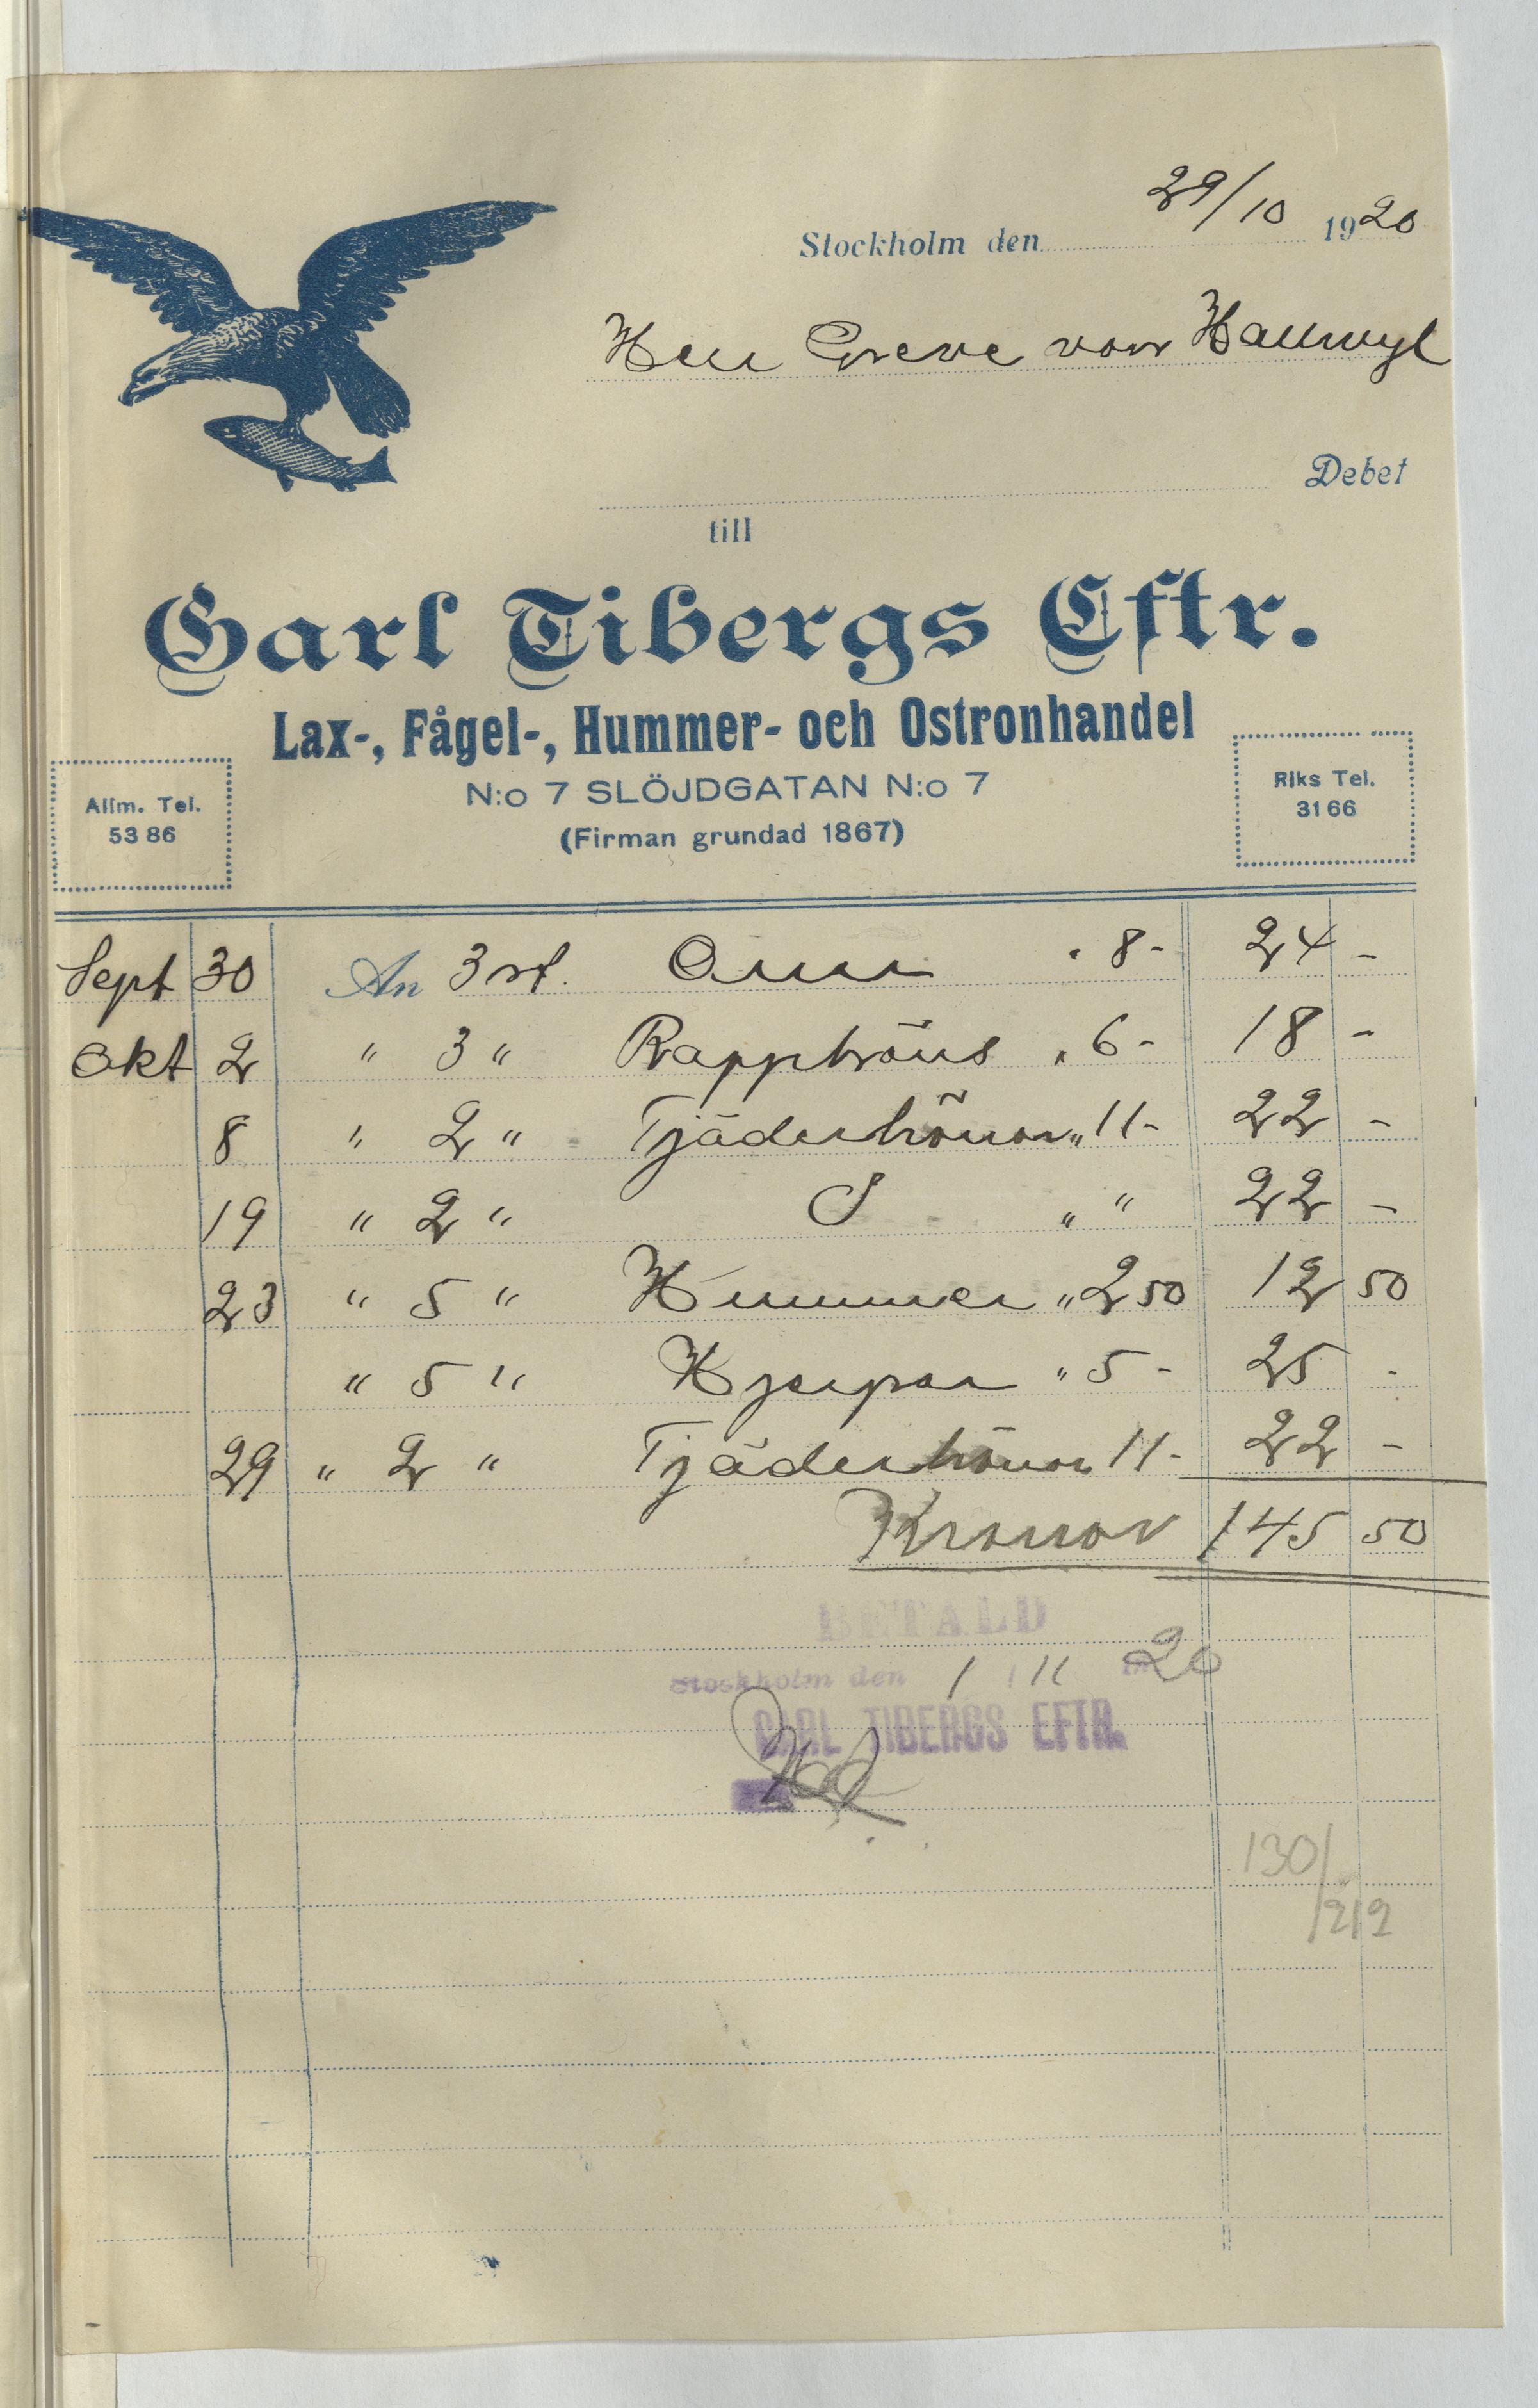 Stockholm den 29/10 1920
Herr Greve von Hallwyl
Debet
till
Carl Tibergs Eftr.
Lax-, Fågel-, Hummer- och Ostronhandel
N:o 7 SLÖJDGATAN N:o 7
(Firman grundad 1867)
Allm. Tel.
53 86
Riks Tel.
31 66
Sept 30 An 3 st. Orrar " 8- 24 -
Okt 2 " 3 " Rapphöns " 6- 18 -
8 " 2 " Tjäderhönor " 11- 22 -
19 " 2 " S " " 22 -
23 " 5 " Hummer " 2 50 12 50
" 5 " Hjerpar " 5 - 25 -
29 " 2 " Tjäderhönor 11- 22 -
Kronor 145 50
BETALD
Stockholm den 1 / 11 20
CARL TIBERGS EFTR.
130/
/212